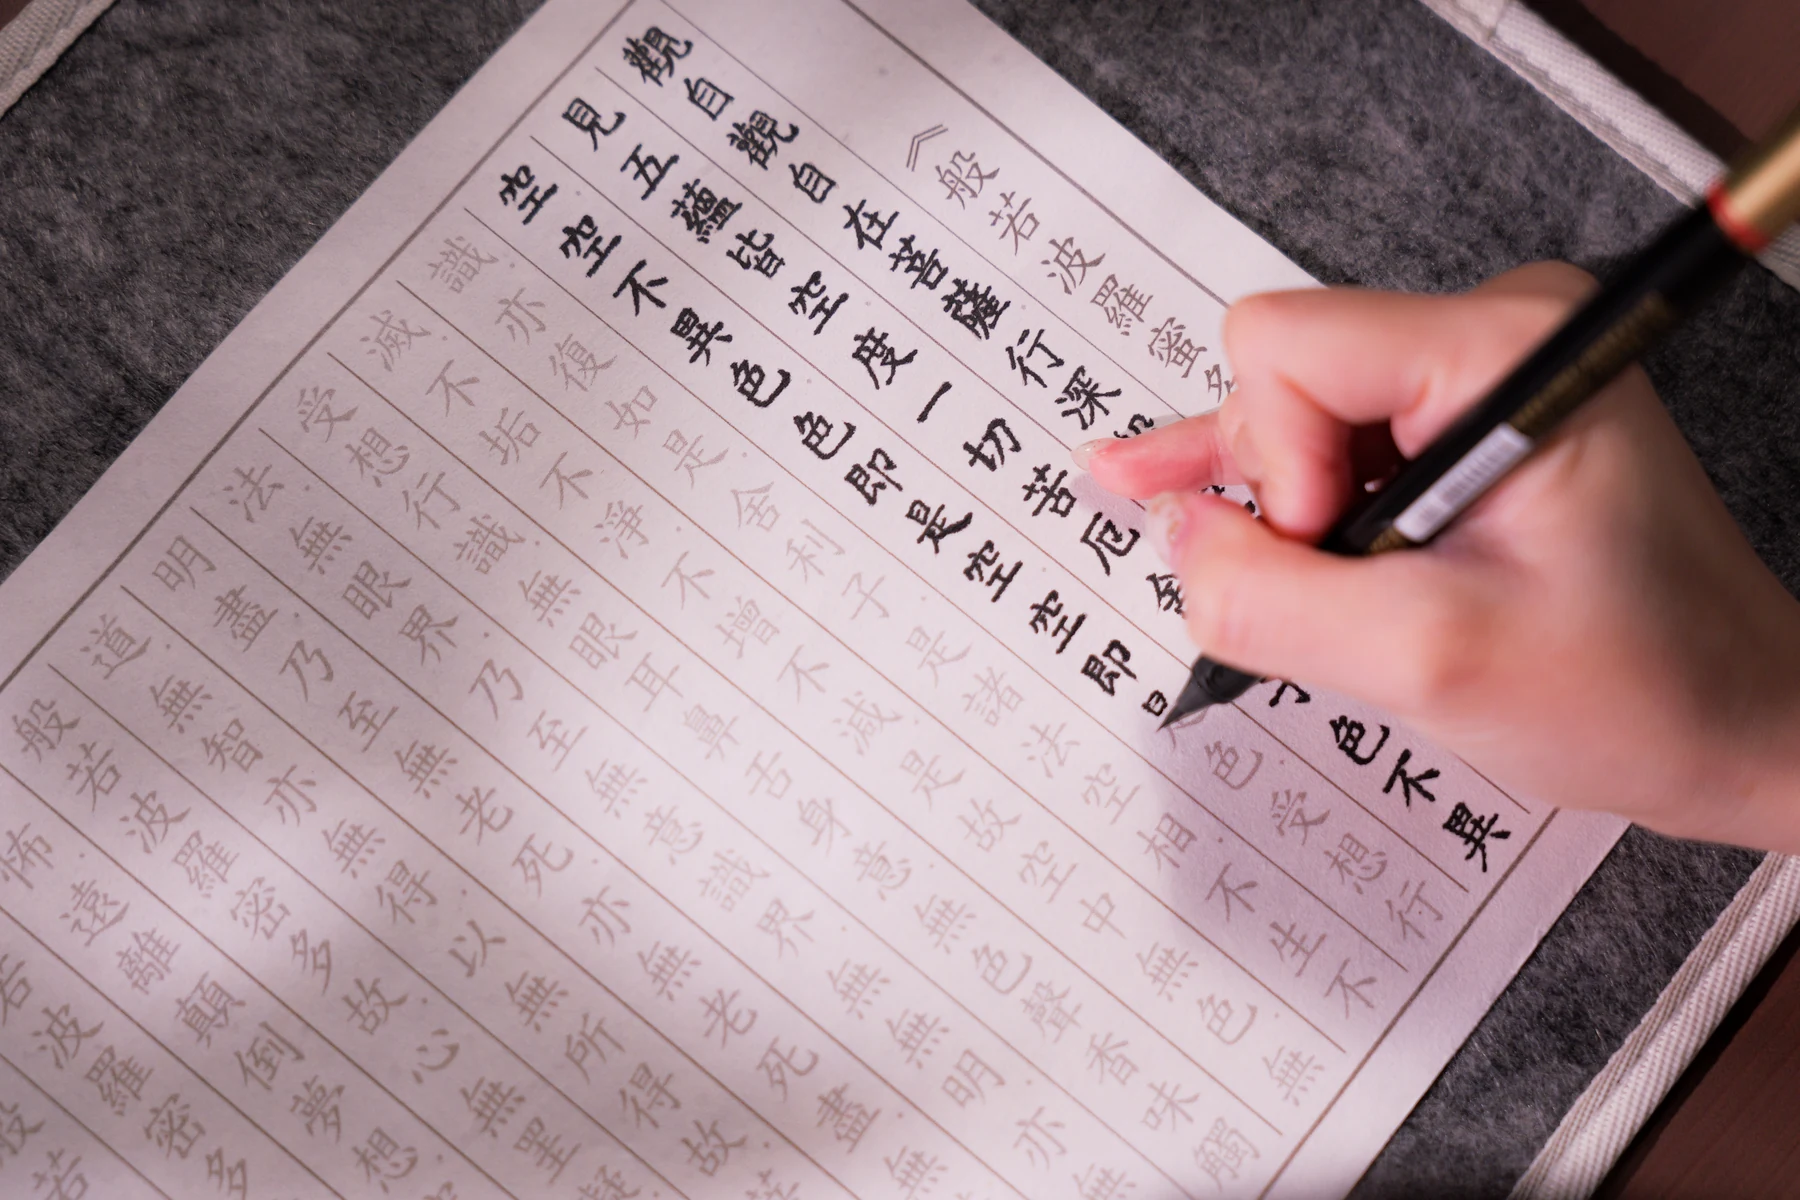 《般若波羅蜜多
觀自觀自在菩薩行深
見五蘊皆空度一切苦厄舍子色不異
空空不異色色即是空空即是色受想行
識亦復如是舍利子是諸法空相不生不
滅不垢不淨不增不減是故空中無色無
受想行識無眼耳鼻舌身意無色聲香味觸
法無眼界乃至無意識界無無明亦無
明盡乃至無老死亦無老死盡無
道無智亦無得以無所得故菩
般若波羅密多故心無罣礙
怖遠離顛倒夢想
若波羅密多
般若